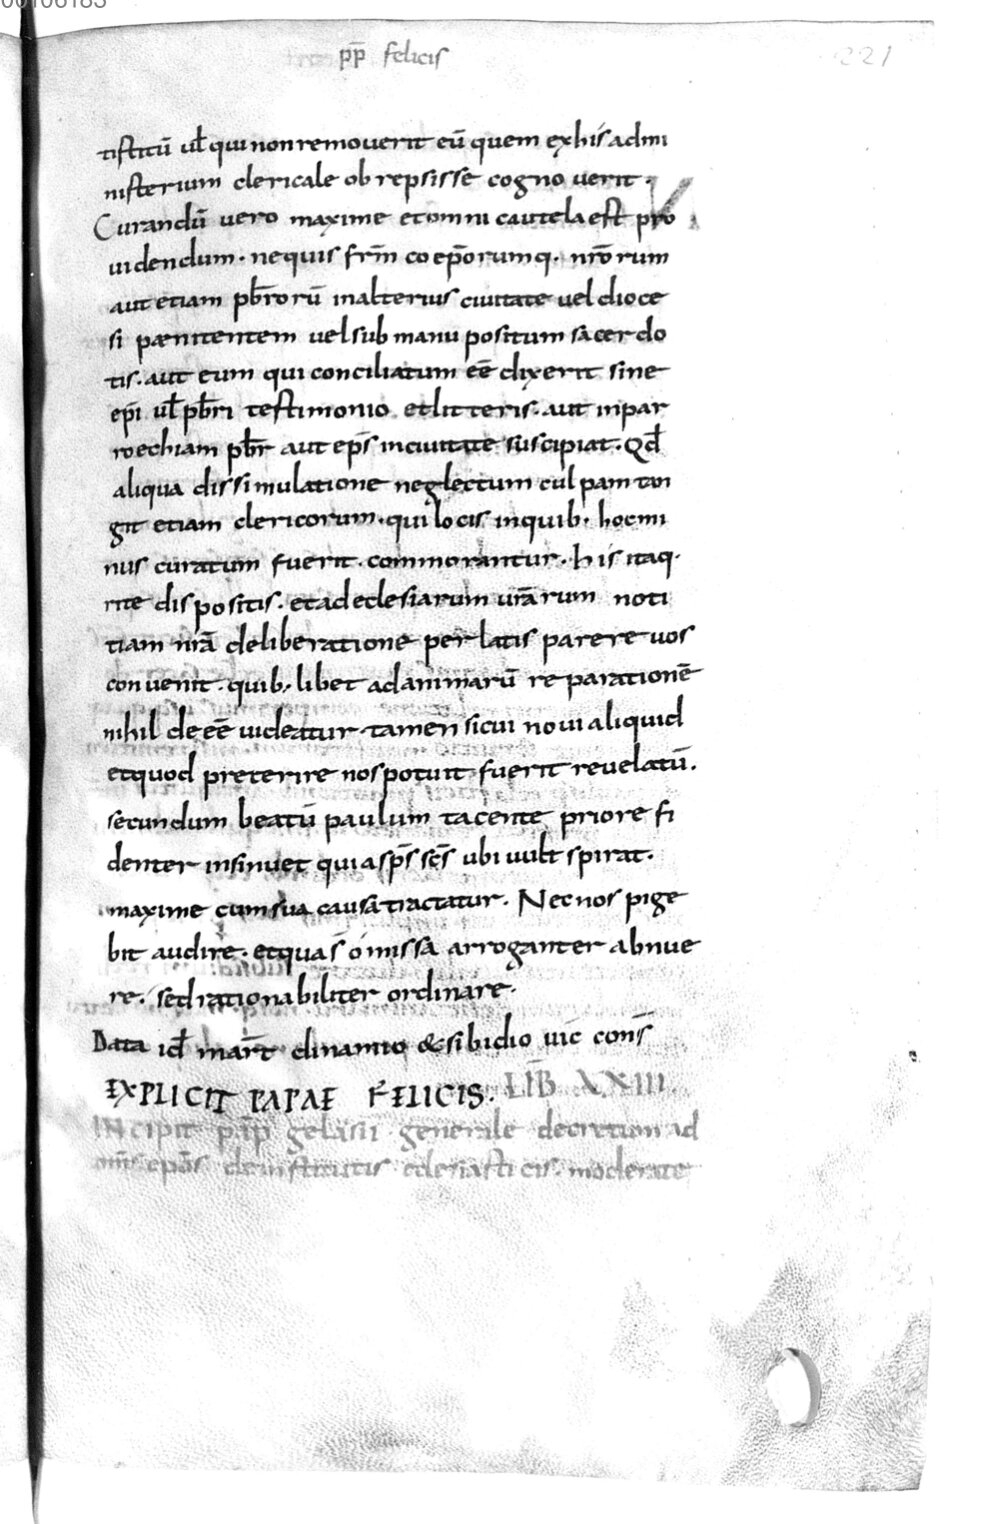 00106183
pp̄ felicis
221
tistitū ul̄ qui non remouerit eū quem ex his admi
nisterium clericale obrepsisse cognouerit.
Curandū uero maxime et omni cautela est pro
uidendum. nequis frm̄ coep̄orumq. nr̄orum
aut etiam pb̄rorū in alterius ciuitate uel dioce
si pænitentem uel sub manu positum sacerdo
tis. aut eum qui conciliatum eē dixerit sine
ep̄i ul̄ pb̄ri testimonio et litteris. aut in par
roechiam pb̄r aut ep̄s in ciuitate suscipiat. Qd̄
aliqua dissimulatione neglectum culpam tan
git etiam clericorum. qui locis in quib. hoc mi
nus curatum fuerit. commorantur. his itaq.
rite dispositis. et ad eclesiarum ur̄arum noti
tiam nr̄a deliberatione perlatis parere uos
conuenit. quib. libet ad animarū reparationē
nihil deeē uideatur. tamen si cui noui aliquid
et quod preterire nos potuit fuerit reuelatū.
secundum beatū paulum tacente priore fi
denter insinuet quia sp̄s sc̄s ubi uult spirat.
maxime cum sua causa tractatur. Nec nos pige
bit audire. et quas omissa arroganter abnue
re. sed rationabiliter ordinare.
Data id̄ mar̄t dinamio & sibidio uic̄ cons̄
EXPLICIT PAPAE FELICIS. LIB̄ XXIII.
INcipit pap̄ gelasii generale decretum ad
om̄s ep̄os de institutis eclesiasticis. moderate